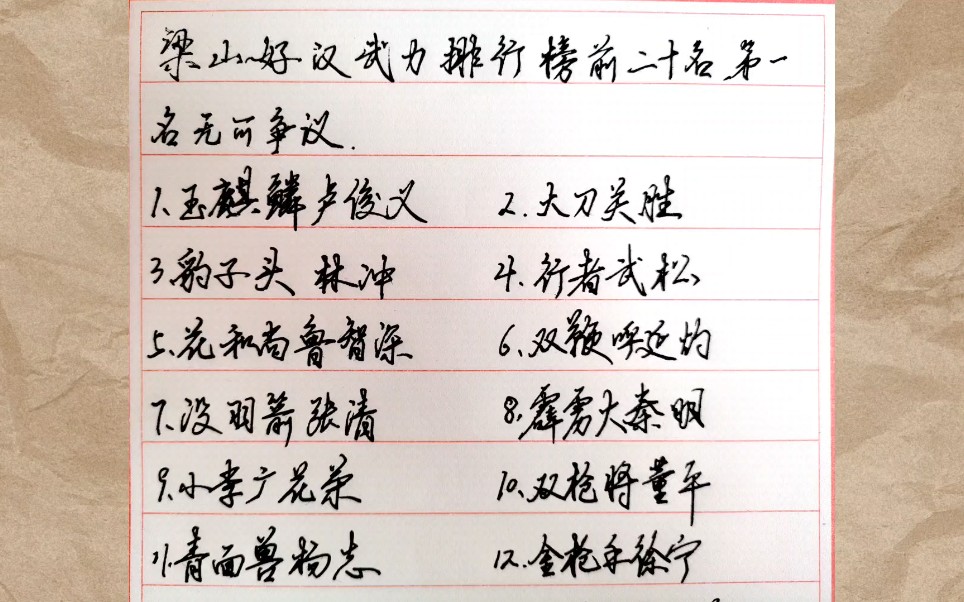 梁山好汉武力排行榜前二十名第一
名无可争议.
1.玉麒麟卢俊义 2.大刀关胜
3.豹子头林冲 4.行者武松
5.花和尚鲁智深 6.双鞭呼延灼
7.没羽箭张清 8.霹雳火秦明
9.小李广花荣 10.双枪将董平
11.青面兽杨志 12.金枪手徐宁